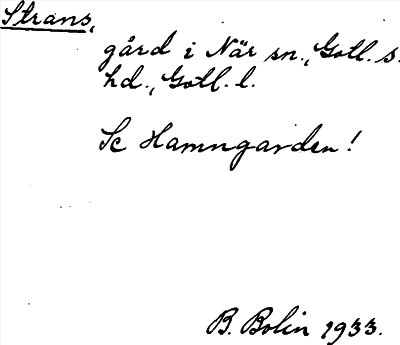 Strans,
gård i När sn., Gotl. s.
hd., Gotl. l.
Se Hamngarden!
B. Bolin 1933.